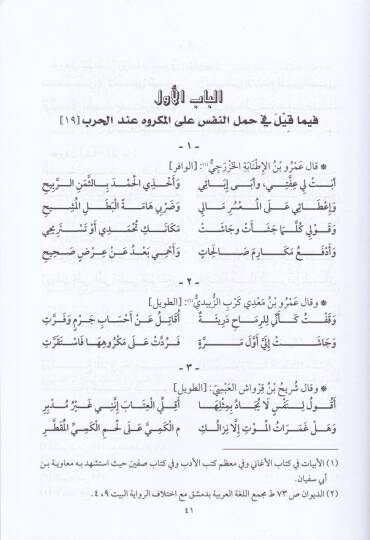 الباب الأول
فيما قيل في حمل النفس على المكروه عند الحرب [١٩]
- ١ -
* قال عمرو بن الإطنابة الخزرجي(١): [الوافر]
أبت لي عفتي، وأبى إبائي وأخذي الحمد بالثمن الربيح
وإعطائي على المعسر مالي وضربي هامة البطل المشيح
وقولي كلما جشأت وجاشت مكانك تحمدي أو تستريحي
وأدفع مكارم صالحات وأحمي بعد عن عرض صحيح
- ٢ -
* وقال عمرو بن معدي كرب الزبيدي(٢): [الطويل]
وقفت كأني للرماح دريئة أقاتل عن أحساب جرم وفرت
وجاشت إلي أول مرة فردت على مكروهها فاستقرت
- ٣ -
* وقال شريح بن قرواش العبسي: [الطويل]
أقول لنفس لا يجاد بمثلها أقلي العتاب إنني غير مدبر
وهل غمرات الموت إلا نزالك م الكمي على لحم الكمي المقطر
(١) الأبيات في كتاب الأغاني وفي معظم كتب الأدب وفي كتاب صفين حيث استشهد به معاوية بن
أبي سفيان.
(٢) الديوان ص ٧٣ ط مجمع اللغة العربية بدمشق مع اختلاف الرواية البيت ٩، ٤.
٤١